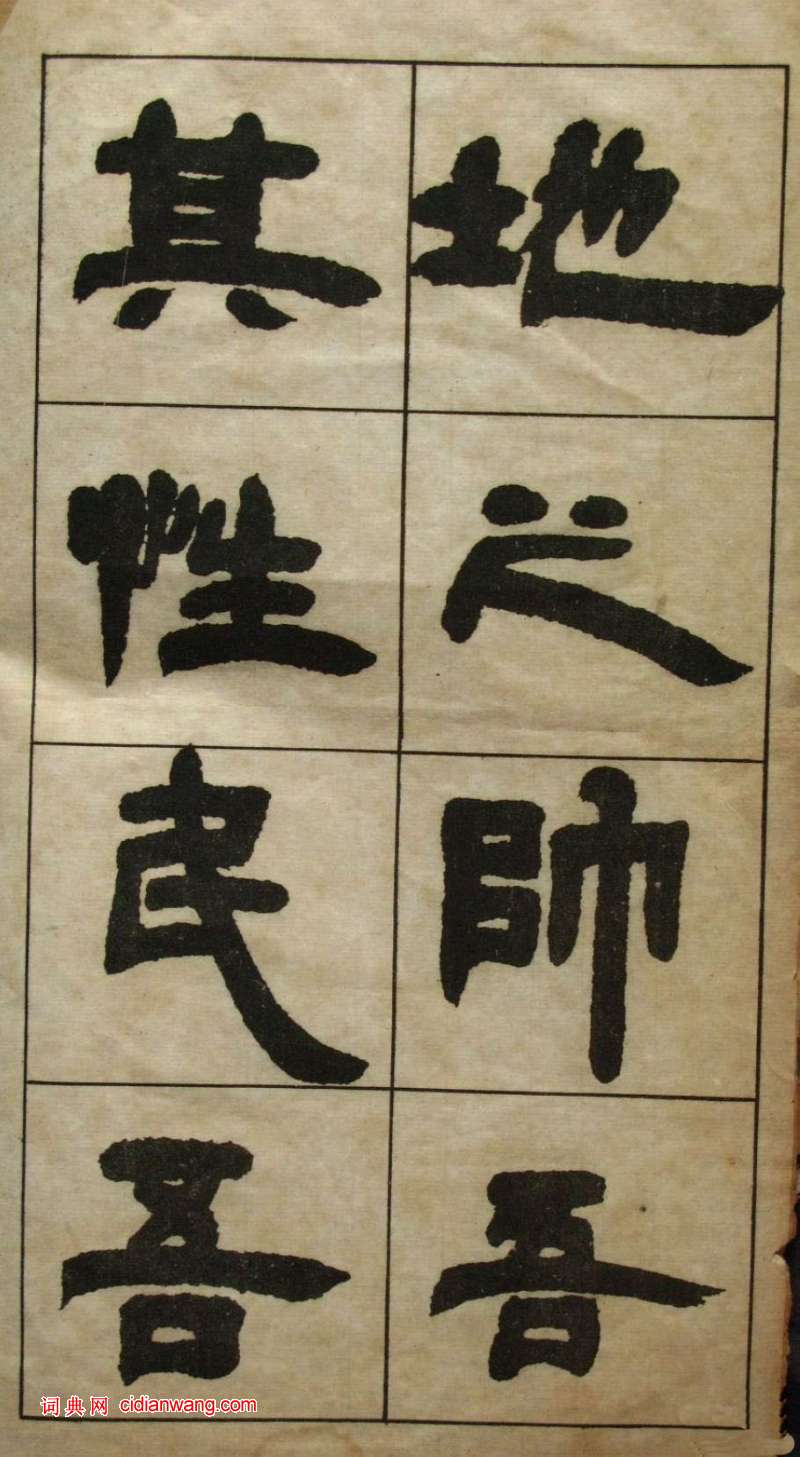 地之帥吾
其性民吾
词典网 cidianwang.com